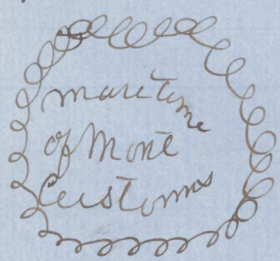 maritime
of Mont
Customs